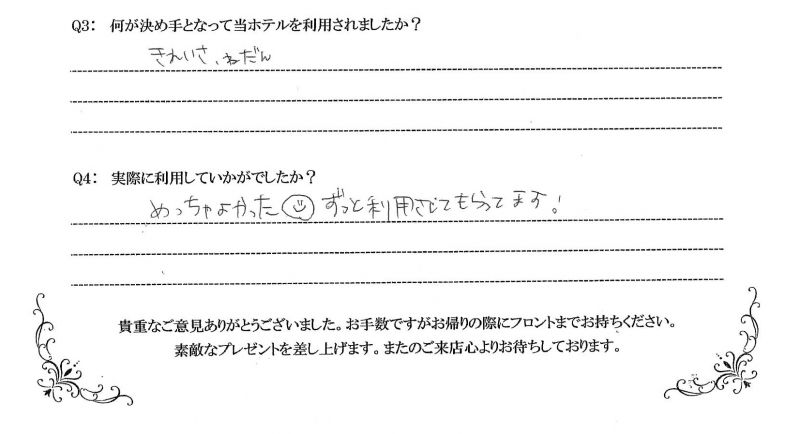 Q3: 何が決め手となって当ホテルを利用されましたか?
きれいさ、ねだん
Q4: 実際に利用していかがでしたか?
めっちゃよかった☺ずっと利用させてもらってます!
貴重なご意見ありがとうございました。お手数ですがお帰りの際にフロントまでお持ちください。
素敵なプレゼントを差し上げます。またのご来店心よりお待ちしております。